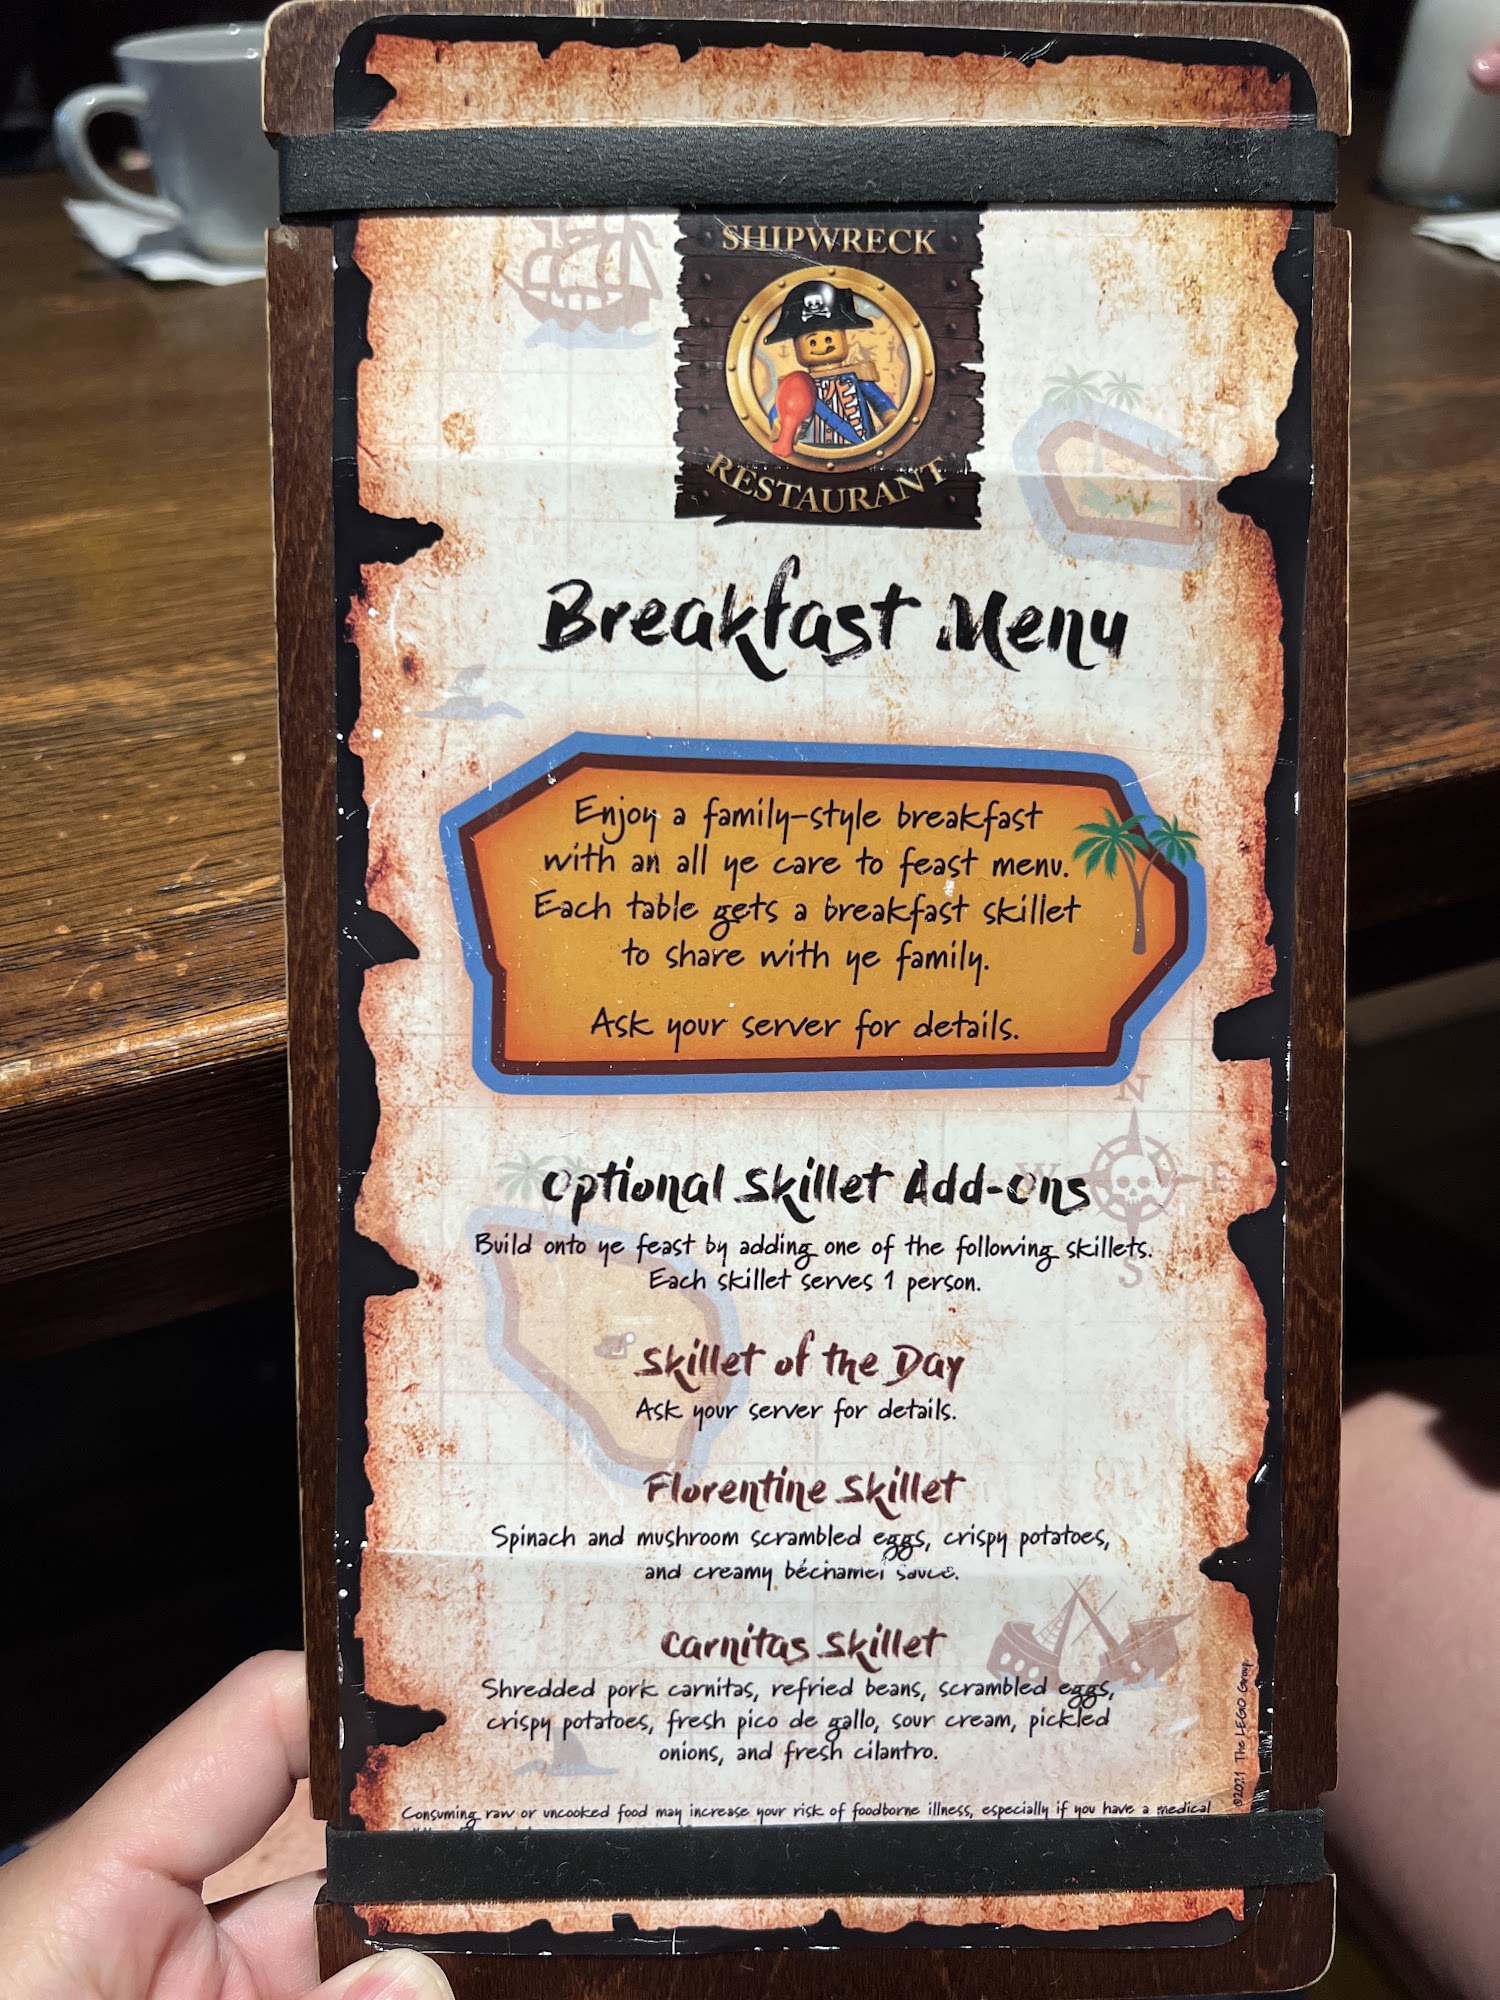 SHIPWRECK
RESTAURANT
Breakfast Menu
Enjoy a family-style breakfast
with an all ye care to feast menu.
Each table gets a breakfast skillet
to share with ye family.
Ask your server for details.
N
W
E
S
Optional Skillet Add-Ons
Build onto ye feast by adding one of the following skillets.
Each skillet serves 1 person.
Skillet of the Day
Ask your server for details.
Florentine Skillet
Spinach and mushroom scrambled eggs, crispy potatoes,
and creamy béchamel sauce.
Carnitas Skillet
Shredded pork carnitas, refried beans, scrambled eggs,
crispy potatoes, fresh pico de gallo, sour cream, pickled
onions, and fresh cilantro.
©2021 The LEGO Group
Consuming raw or uncooked food may increase your risk of foodborne illness, especially if you have a medical